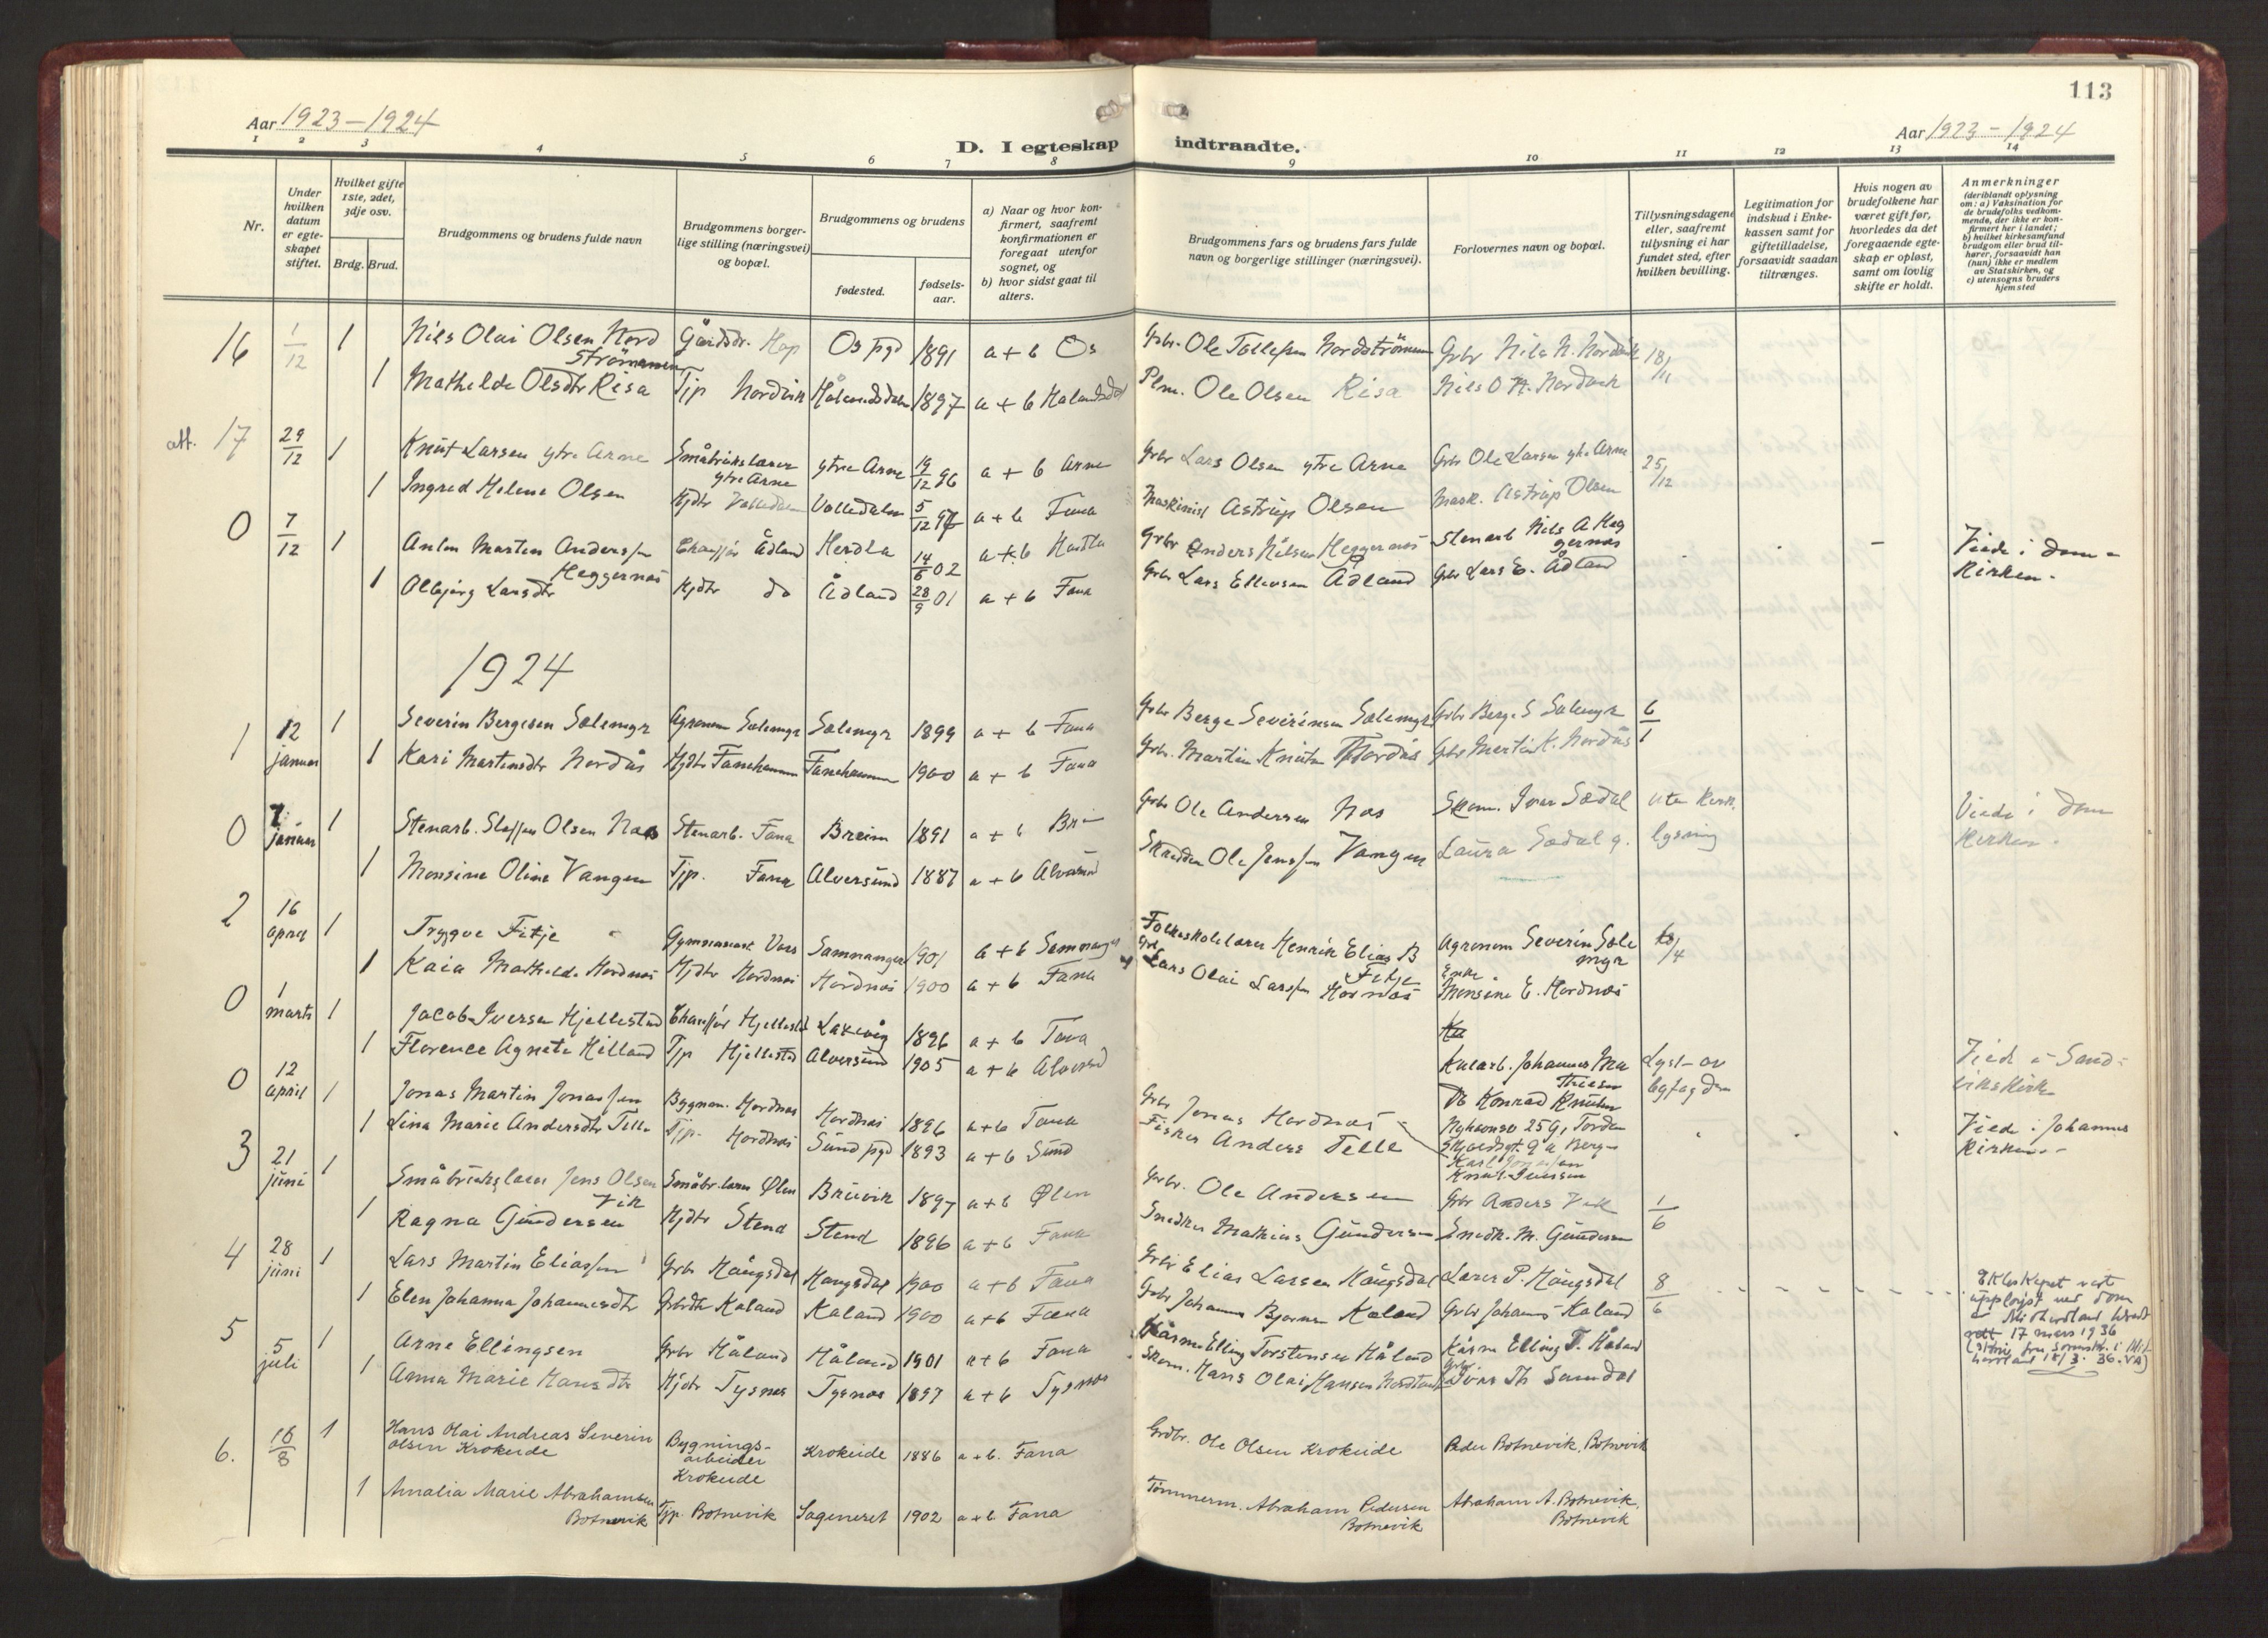 113
Aar 1923-1924
Aar 1923-1924
D. I egteskap indtraadte.
1 2 3 4 5 6 7 8 9 10 11 12 13 14
Nr.
Under hvilken datum er egteskapet stiftet.
Hvilket gifte 1ste, 2det, 3dje osv.
Brdg. Brud.
Brudgommens og brudens fulde navn
Brudgommens borgerlige stilling (næringsvei) og bopæl.
Brudgommens og brudens
fødested.
fødselsaar.
a) Naar og hvor konfirmert, saafremt konfirmationen er foregaat utenfor sognet, og
b) hvor sidst gaat til alters.
Brudgommens fars og brudens fars fulde navn og borgerlige stillinger (næringsvei).
Forlovernes navn og bopæl.
Tillysningsdagene eller, saafremt tillysning ei har fundet sted, efter hvilken bevilling.
Legitimation for indskud i Enkekassen samt for giftetilladelse, forsaavidt saadan tiltrænges.
Hvis nogen av brudefolkene har været gift før, hvorledes da det foregaaende egteskap er opløst, samt om lovlig skifte er holdt.
Anmerkninger
(deriblandt oplysning om: a) Vaksination for de brudefolks vedkommende, der ikke er konfirmert her i landet; b) hvilket kirkesamfund brudgom eller brud tilhører, forsaavidt han (hun) ikke er medlem av Statskirken, og c) utensogns bruders hjemsted
16 1/12 1 Nils Olai Olsen Nordströmmen Gårdbr. Hop Os pgd 1891 a + b Os Grbr. Ole Tollefsen Nordströmmen Grbr Nils N. Nordvik 18/11
1 Mathilde Olsdtr Risa Tjp Nordvik Hålandsdalen 1897 a + b Hålandsdal Plm. Ole Olsen Risa Nils O. Nordvik
att. 17 29/12 1 Knut Larsen ytre Arne Småbrukslærer ytre Arne ytre Arne 19/12 96 a + b Arne Grbr Lars Olsen ytre Arne Grbr Ole Larsen ytre Arne 25/12
1 Ingred Helene Olsen Hjdtr Valledalen Valledalen 5/12 97 a + b Fana Maskinist Astrup Olsen Mask. Astrup Olsen
0 7/12 1 Anton Martin Anderssen Heggernes Chaufför Ådland Herdla 14/6 02 a + b Herdla Grbr Anders Nilsen Heggernes Stenarb Nils A Heggernes - - - Viede i Domkirken.
1 Olbjörg Larsdtr Hjdtr do Ådland 28/9 01 a + b Fana Grbr Lars Ellevsen Ådland Grbr Lars E. Ådland
1924
1 12 januar 1 Severin Bergesen Sælemyr Agronom Sælemyr Sælemyr 1899 a + b Fana Grbr Berge Severinsen Sælemyr Grbr Berge S Sælemyr 6/1
1 Kari Martinsdtr Nordås Hjdtr Fanehammer Fanehammer 1900 a + b Fana Grbr. Martin Knutsen Nordås Grbr Martin K. Nordås
0 7. januar 1 Stenarb. Steffen Olsen Nos Stenarb. Fana Breim 1891 a + b Breim Grbr Ole Andersen Nos Skom. Ivar Sædal uten kirk.
1 Monsine Oline Vangen Tjp. Fana Alversund 1887 a + b Alversund Skredder Ole Jenssen Vangen Laura Sædal g. lysning Viede i Domkirken.
2 16 april 1 Trygve Fitje Gymnasiast Voss Samnanger 1901 a + b Samnanger Folkeskolelærer Henrik Elias B Fitje Agronom Severin Sælemyr /4
1 Kaia Mathilde Hordnes Hjdtr Hordnes Hordnes 1900 a + b Fana Grbr Lars Olai Larssen Hordnes Enke Monsine E. Hordnes
0 1 marts 1 Jacob Iversen Hjellestad Chauffør Hjellestad Laksevåg 1896 a + b Fana
1 Florence Agnete Hilland Tjp Hjellestad Alversund 1905 a + b Alversund Kaiarb. Johannes Mathisen Lyst av Viede i Sandvikskirk
0 12 april 1 Jonas Martin Jonassen Bygnm. Hordnes Hordnes 1896 a + b Fana Grbr Jonas Hordnes
1 Lina Marie Andersdtr Telle Tjp. Hordnes Sund pgd 1893 a + b Sund Fisker Anders Telle Viede i Johanneskirken
3 21 juni 1 Småbrukslærer Jens Olsen Vik Småbr.lærer Ølen Bruvik 1897 a + b Ølen Grbr. Ole Andersen Grbr Anders Vik 1/6
1 Ragna Gundersen Hjdtr Stend Stend 1896 a + b Fana Snedker Mathias Gundersen Snedk. M. Gundersen
4 28 juni 1 Lars Martin Eliassen Grbr Haugsdal Haugsdal 1900 a + b Fana Grbr Elias Larsen Haugsdal Lærer P. Haugsdal 8/6
1 Elen Johanna Johannesdtr Grbrdtr Kaland Kaland 1900 a + b Fana Grbr Johannes Bjørnsen Kaland Grbr Johannes Kaland
Ekteskapet vart uppløyst ved dom Midthordland 17 mars 1936
5 5 juli 1 Arne Ellingsen Grbr Håland Håland 1901 a + b Fana Kårmann Elling Torstensen Håland Kårm Elling T. Håland
1 Anna Marie Hansdtr Hjdtr Tysnes Tysnes 1897 a + b Tysnes Skom. Hans Olai Hansen Grbr. Ivar Th Samdal
6. 16/8 1 Hans Olai Andreas Severin Olsen Krokeide Bygningsarbeider Krokeide Krokeide 1886 a + b. Fana Grdbr. Ole Olsen Krokeide Peder Botnevik, Botnevik
1 Amalia Marie Abrahamsen Botnevik Tjp. Botnevik Sageneset 1902 a + b Fana Tömmerm. Abraham Pedersen Botnevik Abraham A. Botnevik, Botnevik